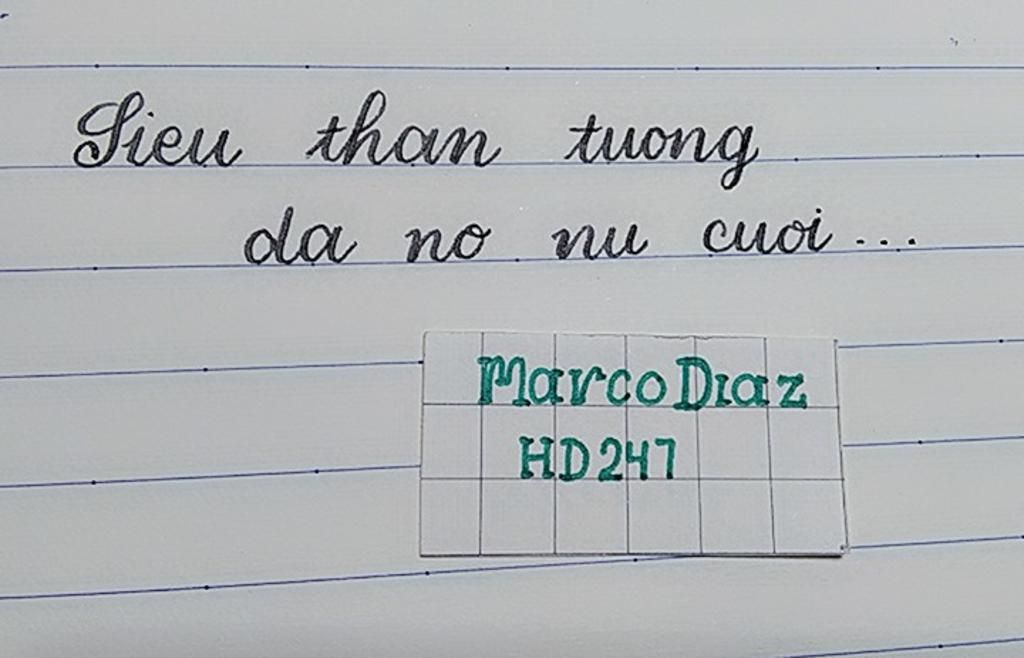 Sieu than tuong
da no nu cuoi...
Marco Diaz
HD247